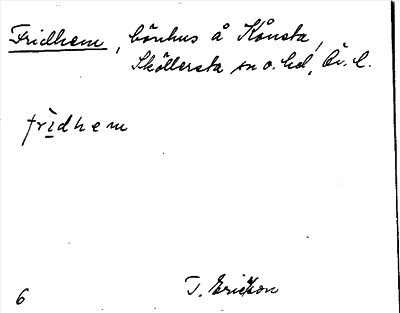 Fridhem, bönhus å Kånsta,
Sköllersta sn o. hd, Ör. l.
frì̲dhem
T. Ericson
6